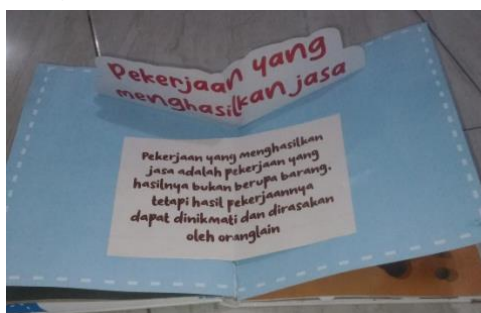 Pekerjaan yang
menghasilkan jasa
Pekerjaan yang menghasilkan
jasa adalah pekerjaan yang
hasilnya bukan berupa barang,
tetapi hasil pekerjaannya
dapat dinikmati dan dirasakan
oleh oranglain